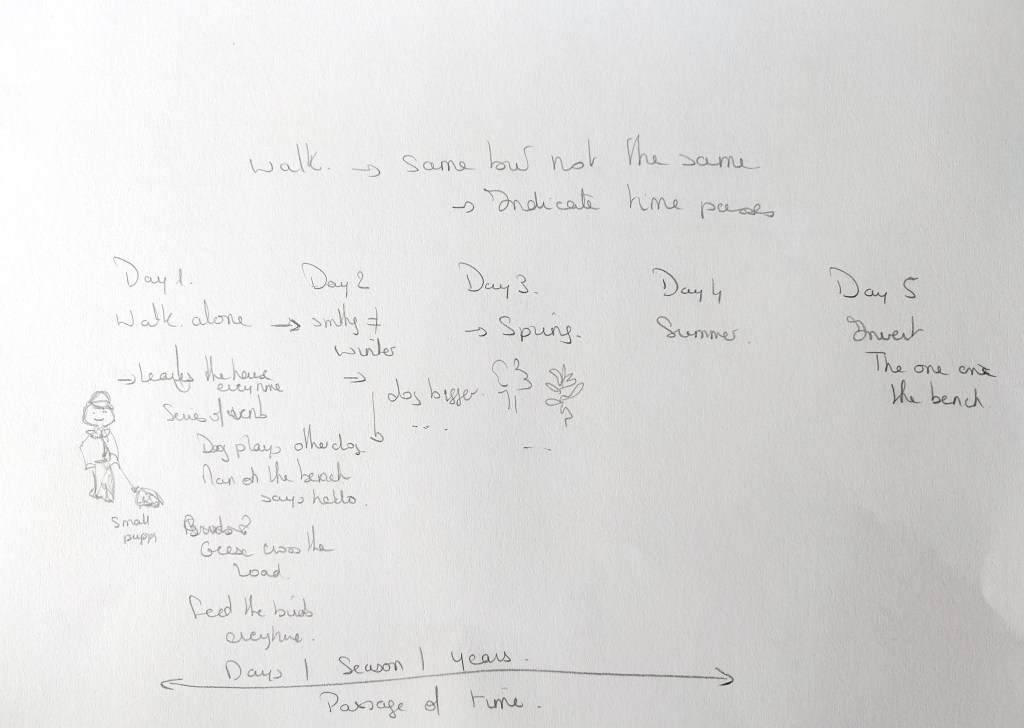 Walk. → Same but not the same
→ Indicate time passes
Day 1.
Walk. alone
→ Leaves the house
everytime
Series of
Dog plays other dog
Man on the bench
says hello.
Small
puppy
Geese cross the
road.
Feed the birds
everytime.
Day 2
→ smthg ≠
winter
→ dog bigger.
...
Day 3.
→ Spring.
...
Day 4
Summer.
Day 5
Invert
The one one
the bench
Days | Season | years.
Passage of time.